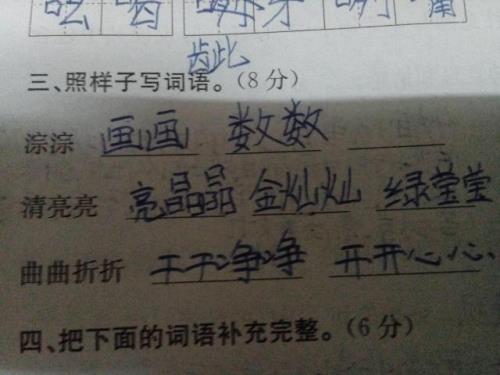 三、照样子写词语。(8分)
淙淙 画画 数数
清亮亮 亮晶晶 金灿灿 绿莹莹
曲曲折折 干干净净 开开心心
四、把下面的词语补充完整。(6分)